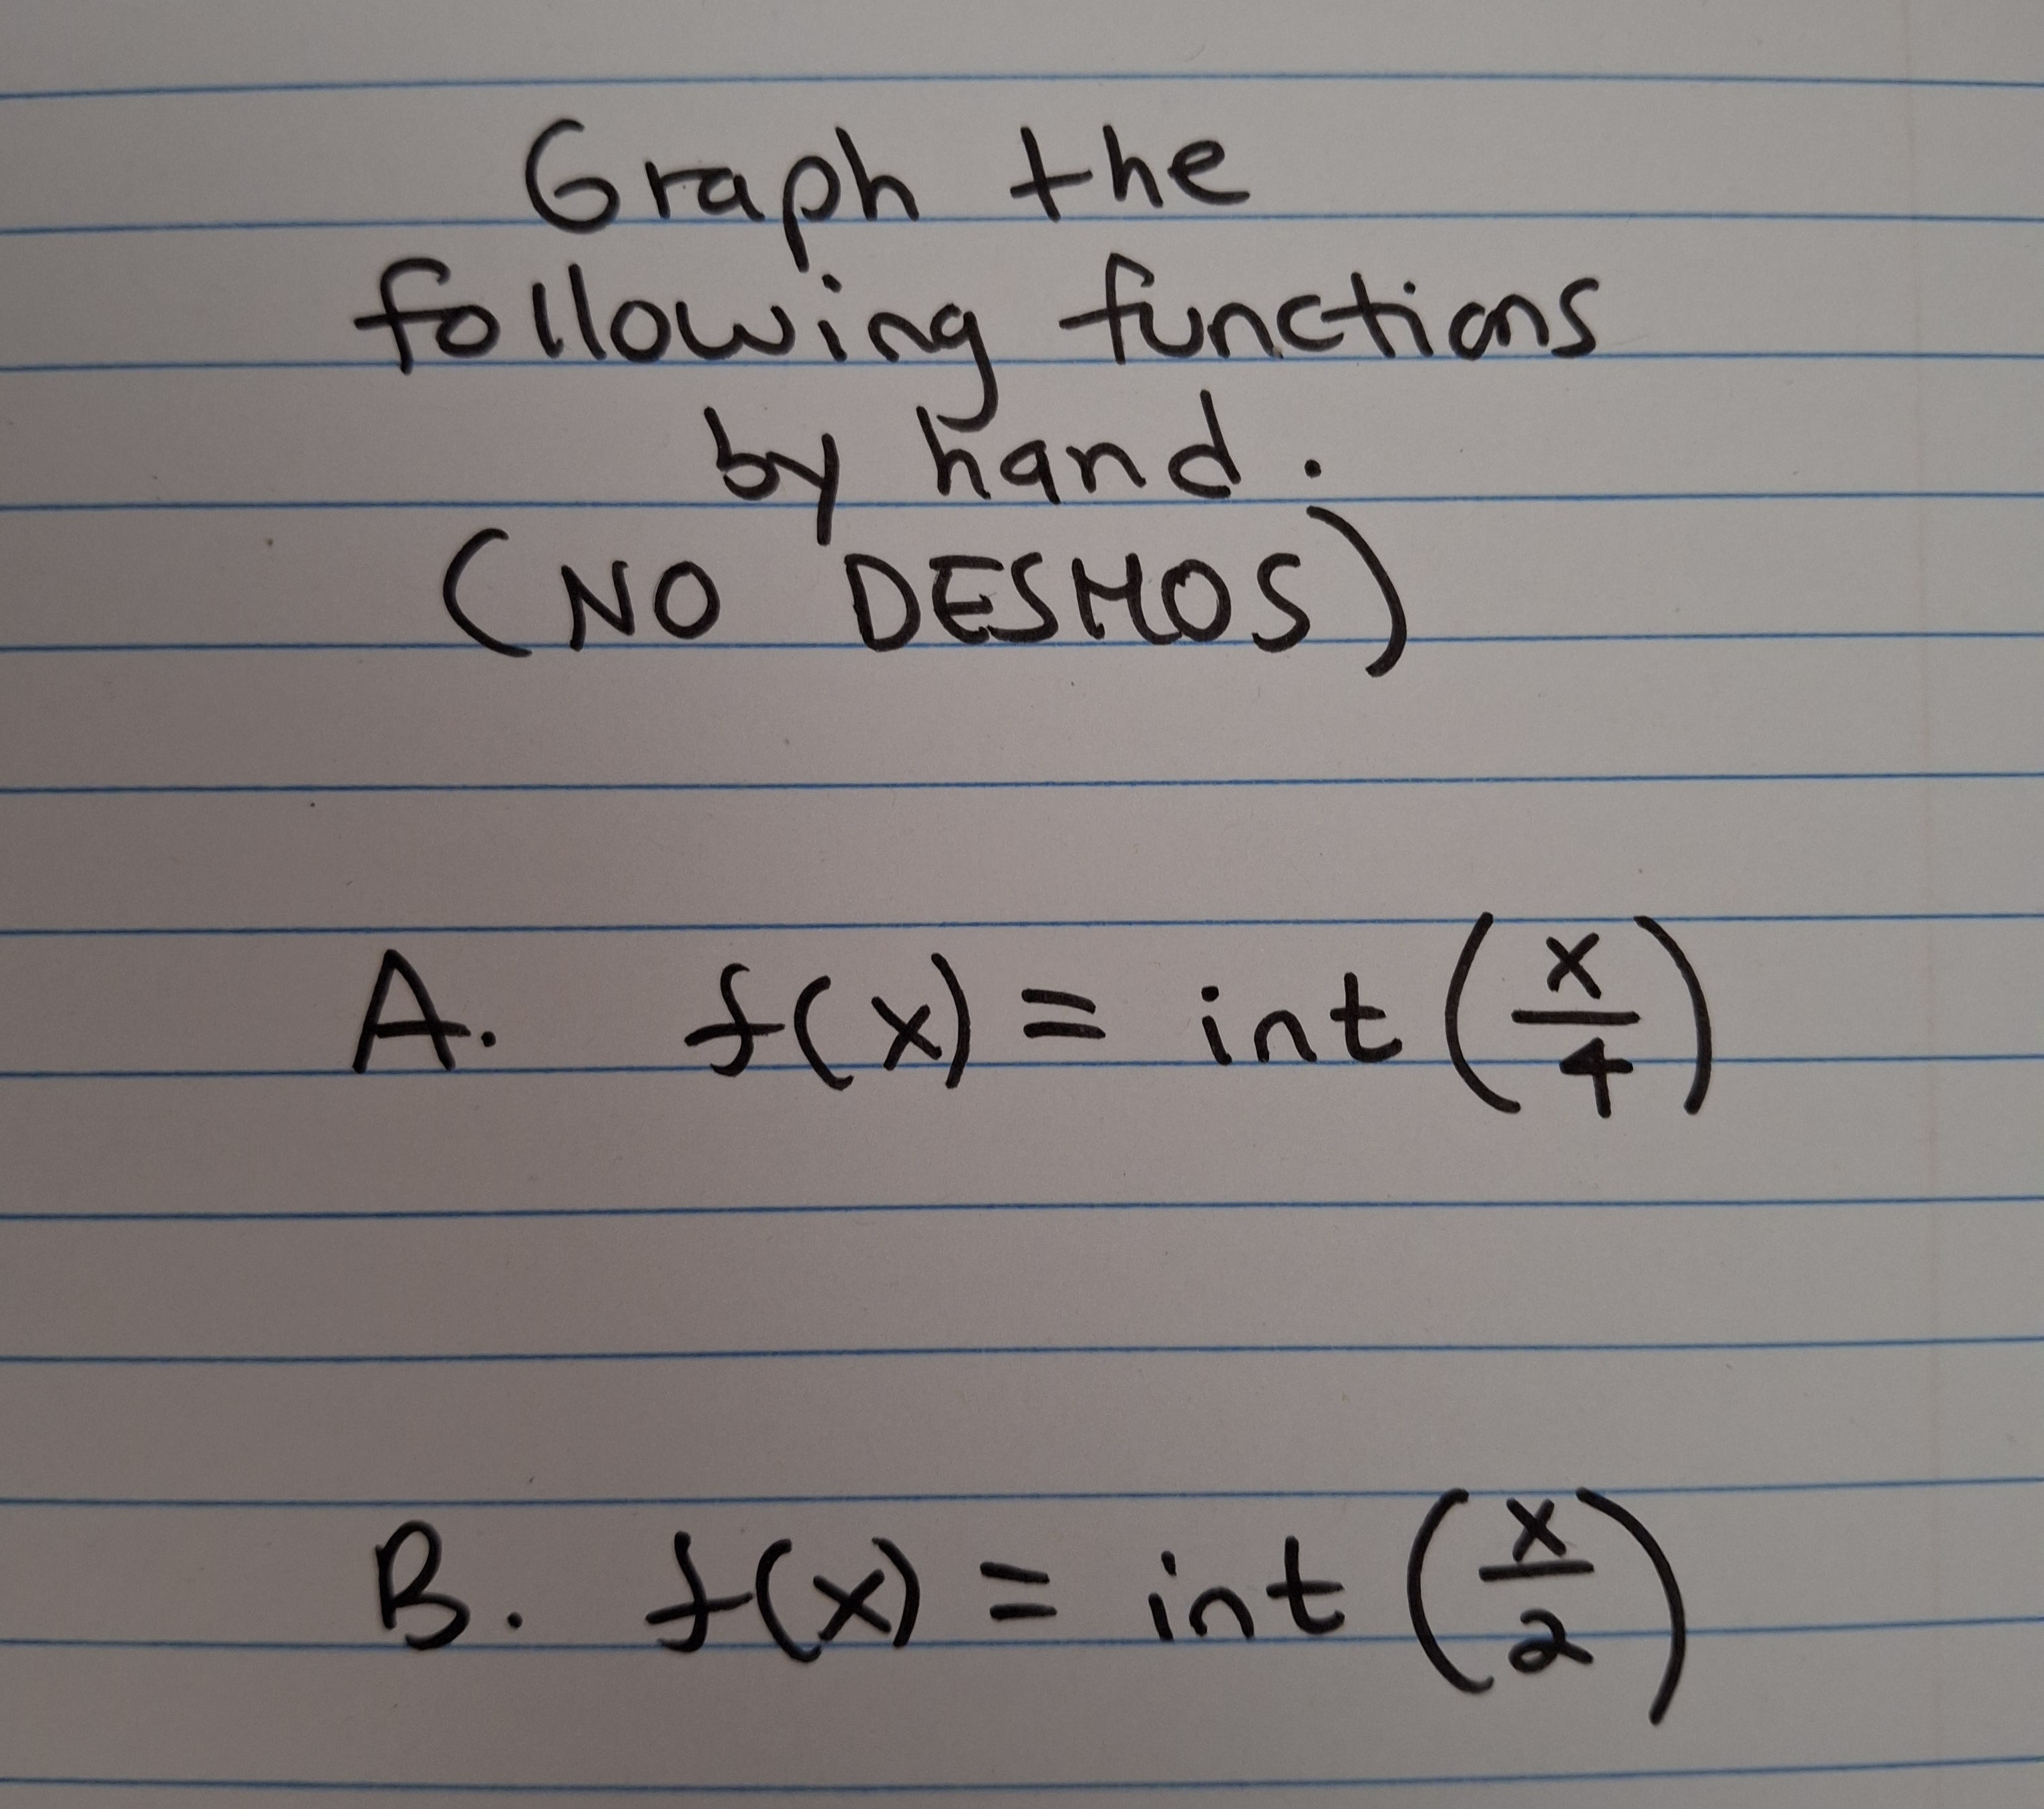 Graph the
following functions
by hand.
(NO DESMOS)
A. f(x) = int (x/4)
B. f(x) = int (x/2)